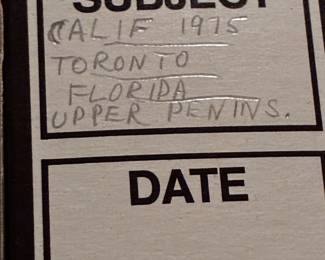 SUBJECT
CALIF 1975
TORONTO
FLORIDA
UPPER PENINS.
DATE